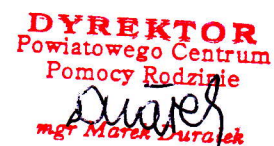 DYREKTOR
Powiatowego Centrum
Pomocy Rodzinie
mgr Marek Durajek